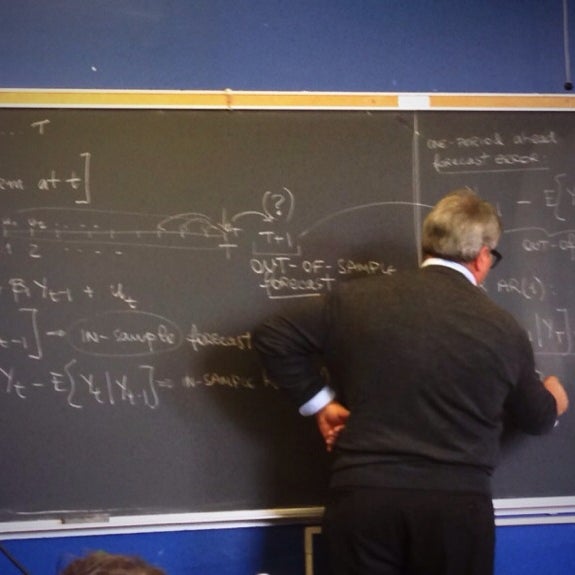 ... T
em at t]
(?)
y₁ y₂ ....
T T+1
1 2 ....
OUT-OF-SAMPLE
forecast
β₁ Yt-1 + ut
t-1] → in-sample forecast
Yt - E{Yt|Yt-1} = IN-SAMPLE
ONE-PERIOD ahead
forecast error:
- E{Y
OUT-OF
AR(1):
|YT]